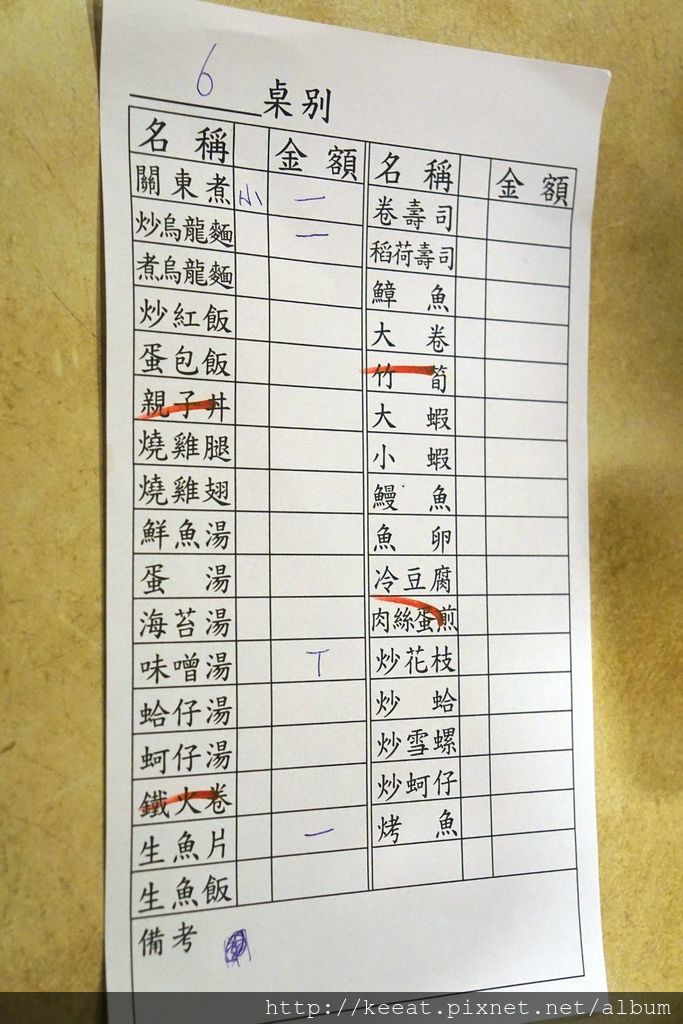 6 桌別
名稱 金額 名稱 金額
關東煮 小 一 卷壽司
炒烏龍麵 一 稻荷壽司
煮烏龍麵 鱆魚
炒紅飯 大卷
蛋包飯 竹筍
親子丼 大蝦
燒雞腿 小蝦
燒雞翅 鰻魚
鮮魚湯 魚卵
蛋湯 冷豆腐
海苔湯 肉絲蛋煎
味噌湯 T 炒花枝
蛤仔湯 炒蛤
蚵仔湯 炒雪螺
鐵火卷 炒蚵仔
生魚片 一 烤魚
生魚飯
備考
http://keeat.pixnet.net/album